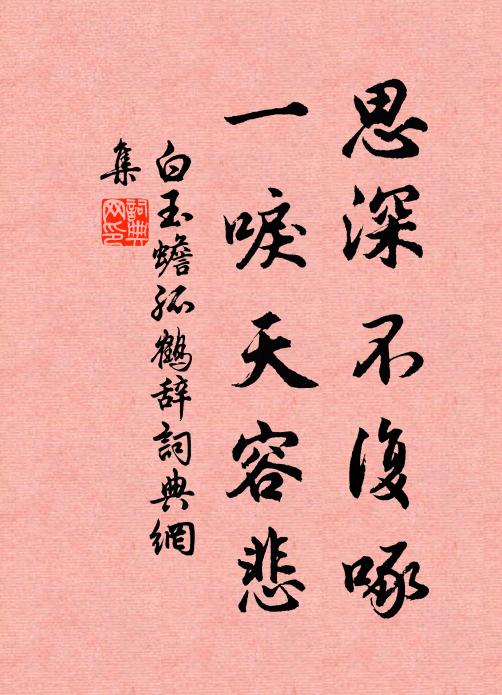 思深不復啄
一唳天容悲
白玉蟾孤鶴辞詞典網
集
詞典
网印